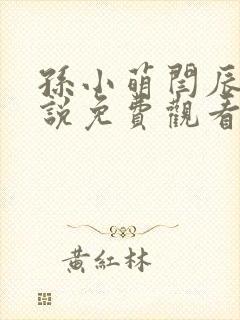 孫小萌閆辰
說免費觀看
黃紅林